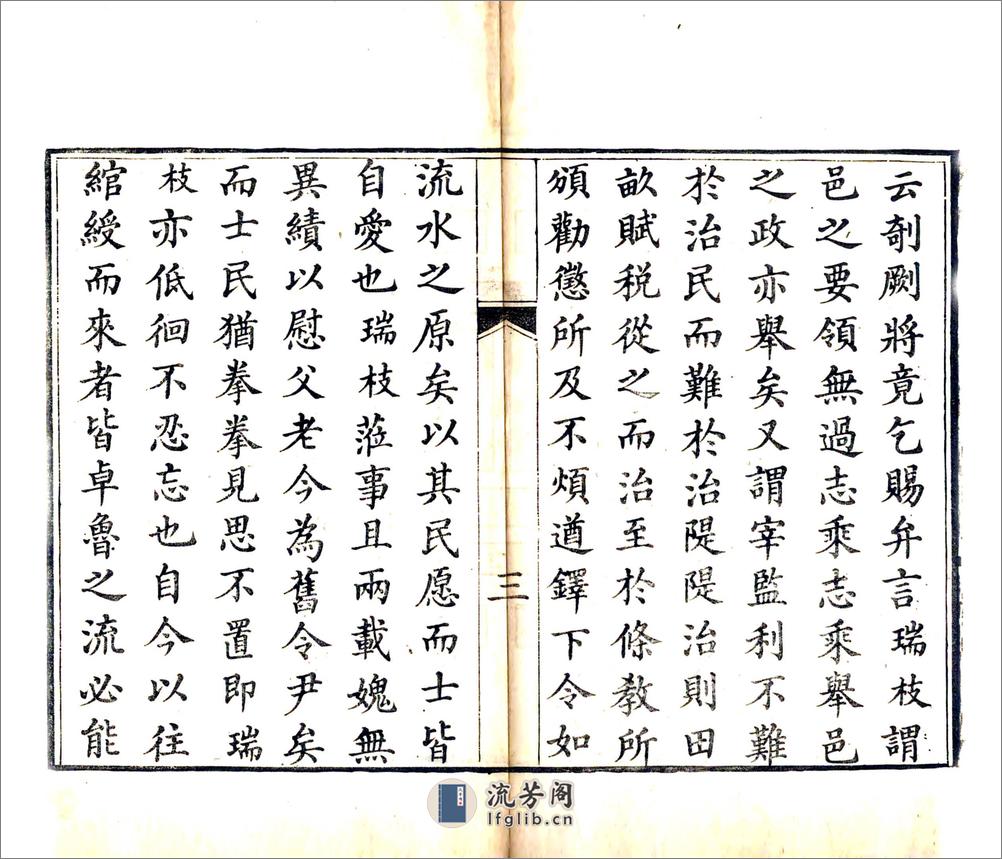 云剞劂將竟乞賜弁言瑞枝謂
邑之要領無過志乘志乘舉邑
之政亦舉矣又謂宰監利不難
於治民而難於治隄隄治則田
畝賦税從之而治至於條教所
頒勸懲所及不煩遒鐸下令如
三
流水之原矣以其民愿而士皆
自愛也瑞枝蒞事且兩載媿無
異績以慰父老今為舊令尹矣
而士民猶拳拳見思不置即瑞
枝亦低徊不忍忘也自今以往
綰綬而來者皆卓魯之流必能
流芳阁
lfglib.cn